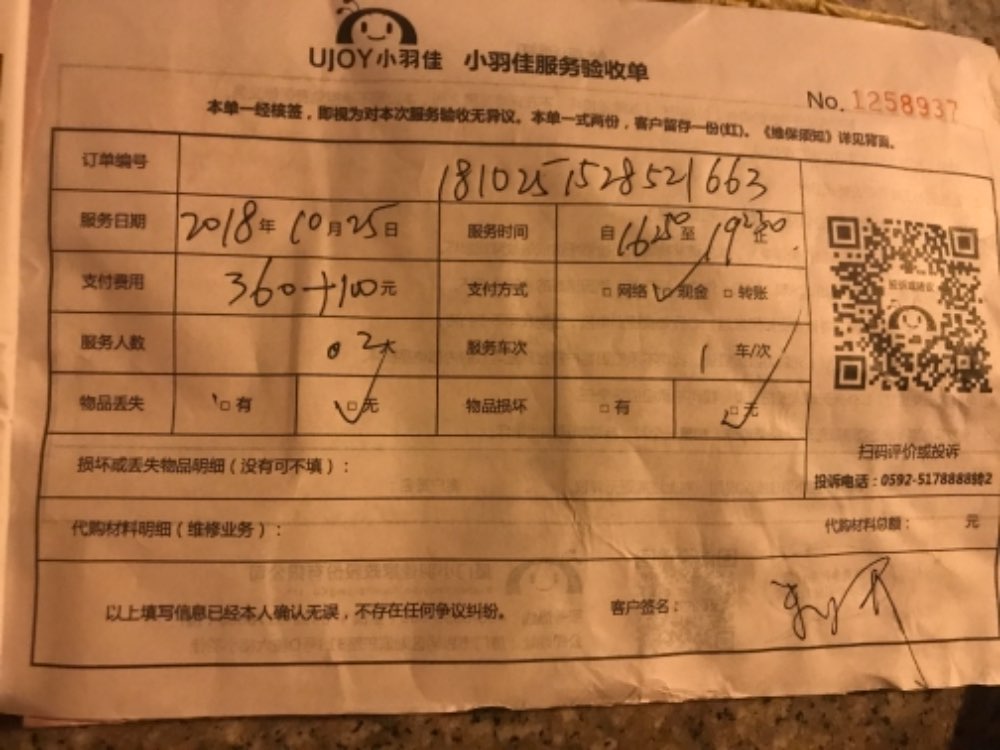 UJOY小羽佳 小羽佳服务验收单
No. 1258937
本单一经核签，即视为对本次服务验收无异议。本单一式两份，客户留存一份(红)。《维保须知》详见背面。
订单编号 1810251528521663
服务日期 2018年10月25日 服务时间 自1650至19230止
支付费用 360+100元 支付方式 □网络 ☑现金 □转账
服务人数 02人 服务车次 1 车/次
物品丢失 □有 ☑无 物品损坏 □有 ☑无
投诉或建议
扫码评价或投诉
投诉电话：0592-5178888转2
损坏或丢失物品明细（没有可不填）：
代购材料明细（维修业务）： 代购材料总额： 元
以上填写信息已经本人确认无误，不存在任何争议纠纷。 客户签名：